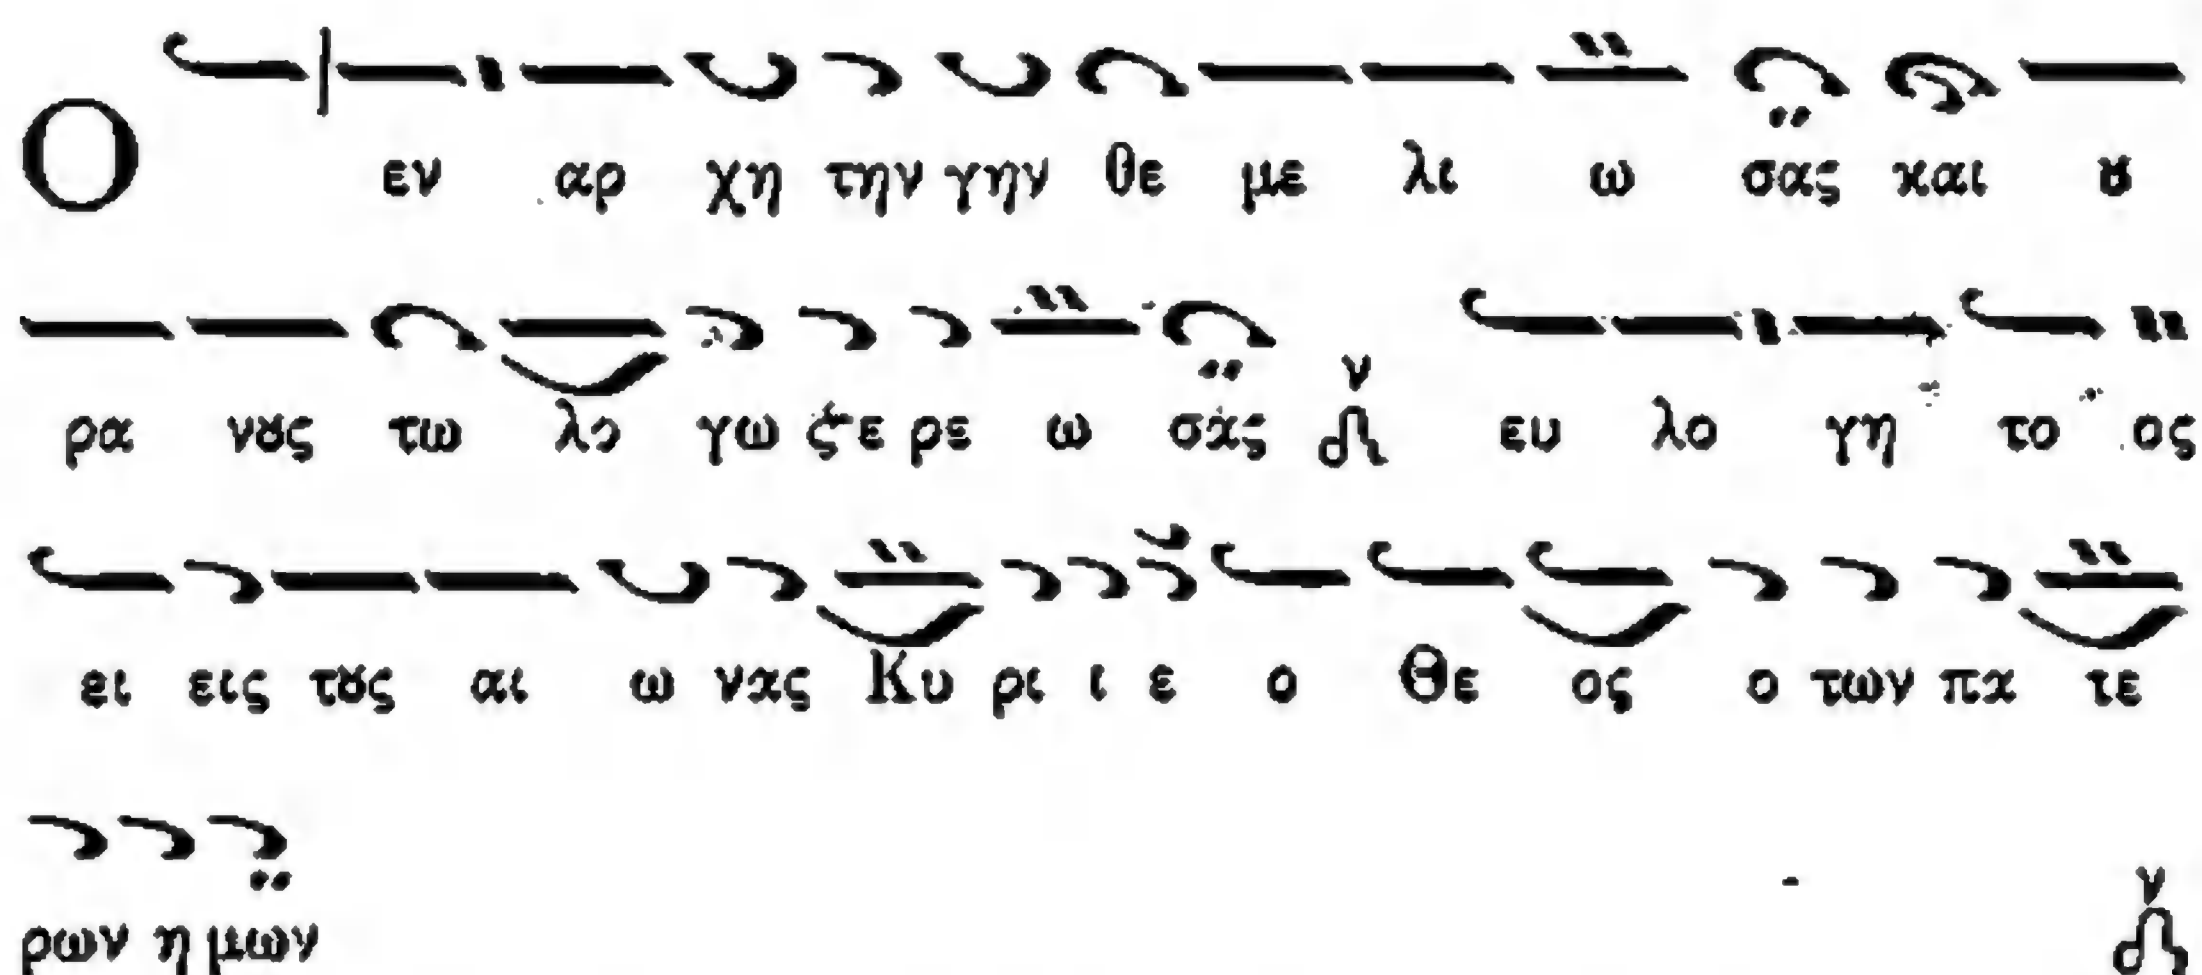 Ο εν αρ χη την γην θε με λι ω σας και ȣ
ρα νȣς τω λο γω ϛε ρε ω σας ν ευ λο γη το ος
ει εις τȣς αι ω νας Κυ ρι ι ε ο Θε ος ο των πα τε
ρων η μων ν